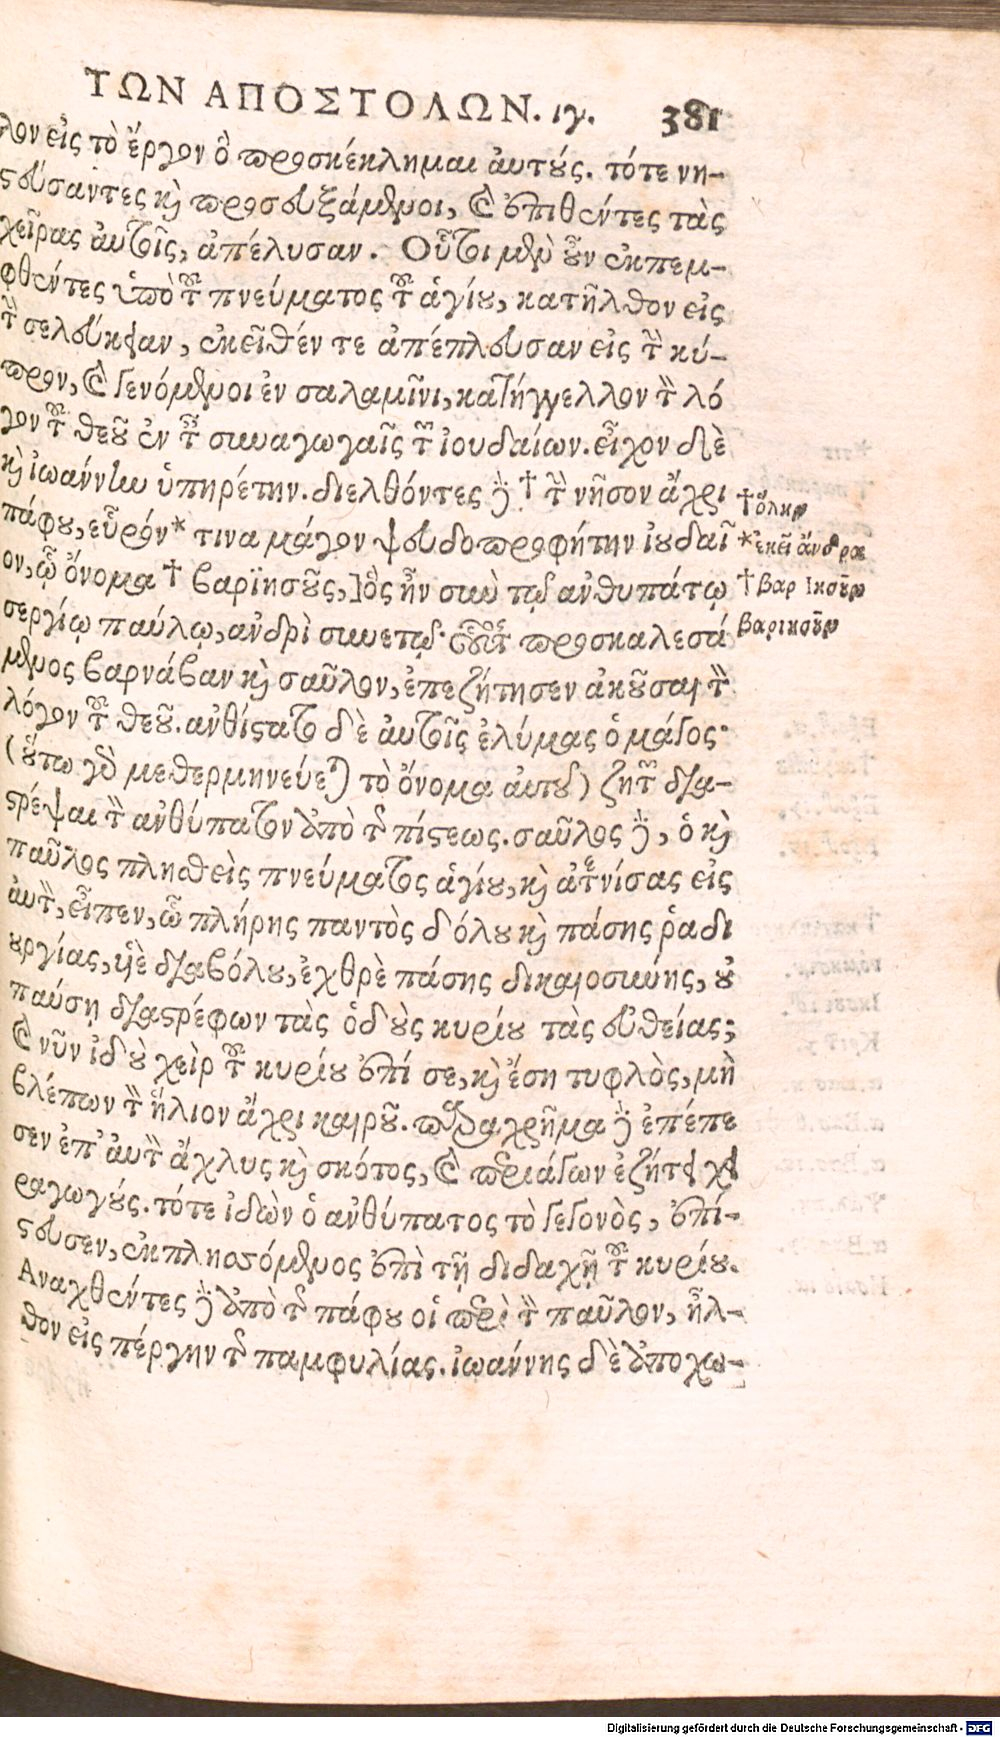 ΤΩΝ ΑΠΟΣΤΟΛΩΝ. ιγ. 381
λον εἰς τὸ ἔργον ὃ προσκέκλημαι αὐτούς. τότε νη-
στεύσαντες καὶ προσευξάμενοι, καὶ ἐπιθέντες τὰς
χεῖρας αὐτοῖς, ἀπέλυσαν. Οὗτοι μὲν οὖν ἐκπεμ-
φθέντες ὑπὸ τοῦ πνεύματος τοῦ ἁγίου, κατῆλθον εἰς
τὴν σελούκειαν, ἐκεῖθέν τε ἀπέπλευσαν εἰς τὴν κύ-
προν, καὶ γενόμενοι ἐν σαλαμῖνι, κατήγγελλον τὸν λό
γον τοῦ θεοῦ ἐν ταῖς συναγωγαῖς τῶν ἰουδαίων. εἶχον δὲ
καὶ ἰωάννην ὑπηρέτην. διελθόντες δὲ † τὴν νῆσον ἄχρι
πάφου, εὗρόν * τινα μάγον ψευδοπροφήτην ἰουδαῖ
ον, ᾧ ὄνομα † βαρϊησοῦς,] ὃς ἦν σὺν τῷ ἀνθυπάτῳ
σεργίῳ παύλῳ, ἀνδρὶ συνετῷ· οὗτος προσκαλεσά
μενος βαρνάβαν καὶ σαῦλον, ἐπεζήτησεν ἀκοῦσαι τὸν
λόγον τοῦ θεοῦ. ἀνθίστατο δὲ αὐτοῖς ἐλύμας ὁ μάγος·
(οὕτω γὰρ μεθερμηνεύεται τὸ ὄνομα αὐτοῦ) ζητῶν δια-
στρέψαι τὸν ἀνθύπατον ἀπὸ τῆς πίστεως. σαῦλος δὲ, ὁ καὶ
παῦλος πλησθεὶς πνεύματος ἁγίου, καὶ ἀτενίσας εἰς
αὐτὸν, εἶπεν, ὦ πλήρης παντὸς δόλου καὶ πάσης ῥαδι
ουργίας, υἱὲ διαβόλου, ἐχθρὲ πάσης δικαιοσύνης, οὐ
παύσῃ διαστρέφων τὰς ὁδοὺς κυρίου τὰς εὐθείας;
καὶ νῦν ἰδοὺ χεὶρ τοῦ κυρίου ἐπί σε, καὶ ἔση τυφλὸς, μὴ
βλέπων τὸν ἥλιον ἄχρι καιροῦ. παραχρῆμα δὲ ἐπέπε
σεν ἐπ' αὐτὸν ἄχλυς καὶ σκότος, καὶ περιάγων ἐζήτει χει
ραγωγούς. τότε ἰδὼν ὁ ἀνθύπατος τὸ γεγονὸς, ἐπί-
στευσεν, ἐκπλησσόμενος ἐπὶ τῇ διδαχῇ τοῦ κυρίου.
Αναχθέντες δὲ ἀπὸ τῆς πάφου οἱ περὶ τὸν παῦλον, ἦλ-
θον εἰς πέργην τῆς παμφυλίας. ἰωάννης δὲ ἀποχω-
† ὅλην
* ἐκεῖ ἄνδρα
† βαρ Ιησοῦν
βαριησοῦν
Digitalisierung gefördert durch die Deutsche Forschungsgemeinschaft - DFG